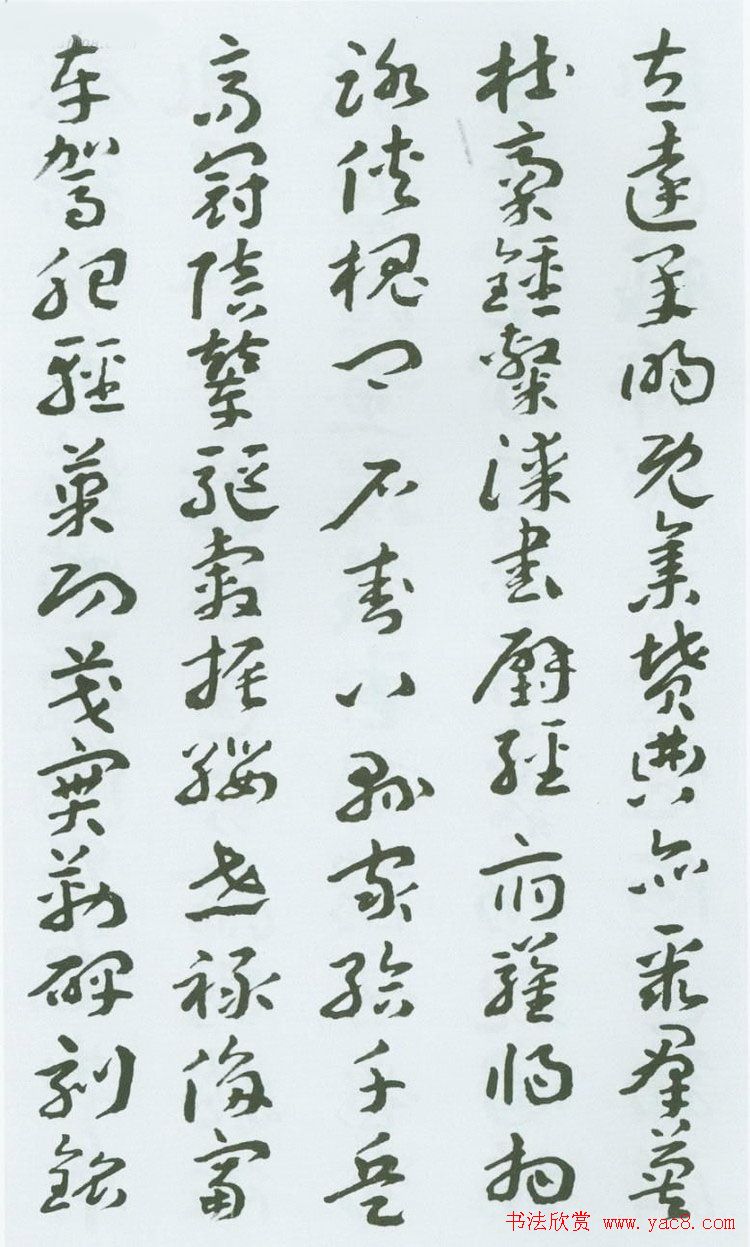 左達承明既集墳典亦聚羣英
杜稾鍾隸漆書壁經府羅將相
路俠槐卿戶封八縣家給千兵
高冠陪輦驅轂振纓世祿侈富
車駕肥輕策功茂實勒碑刻銘
书法欣赏 www.yac8.com